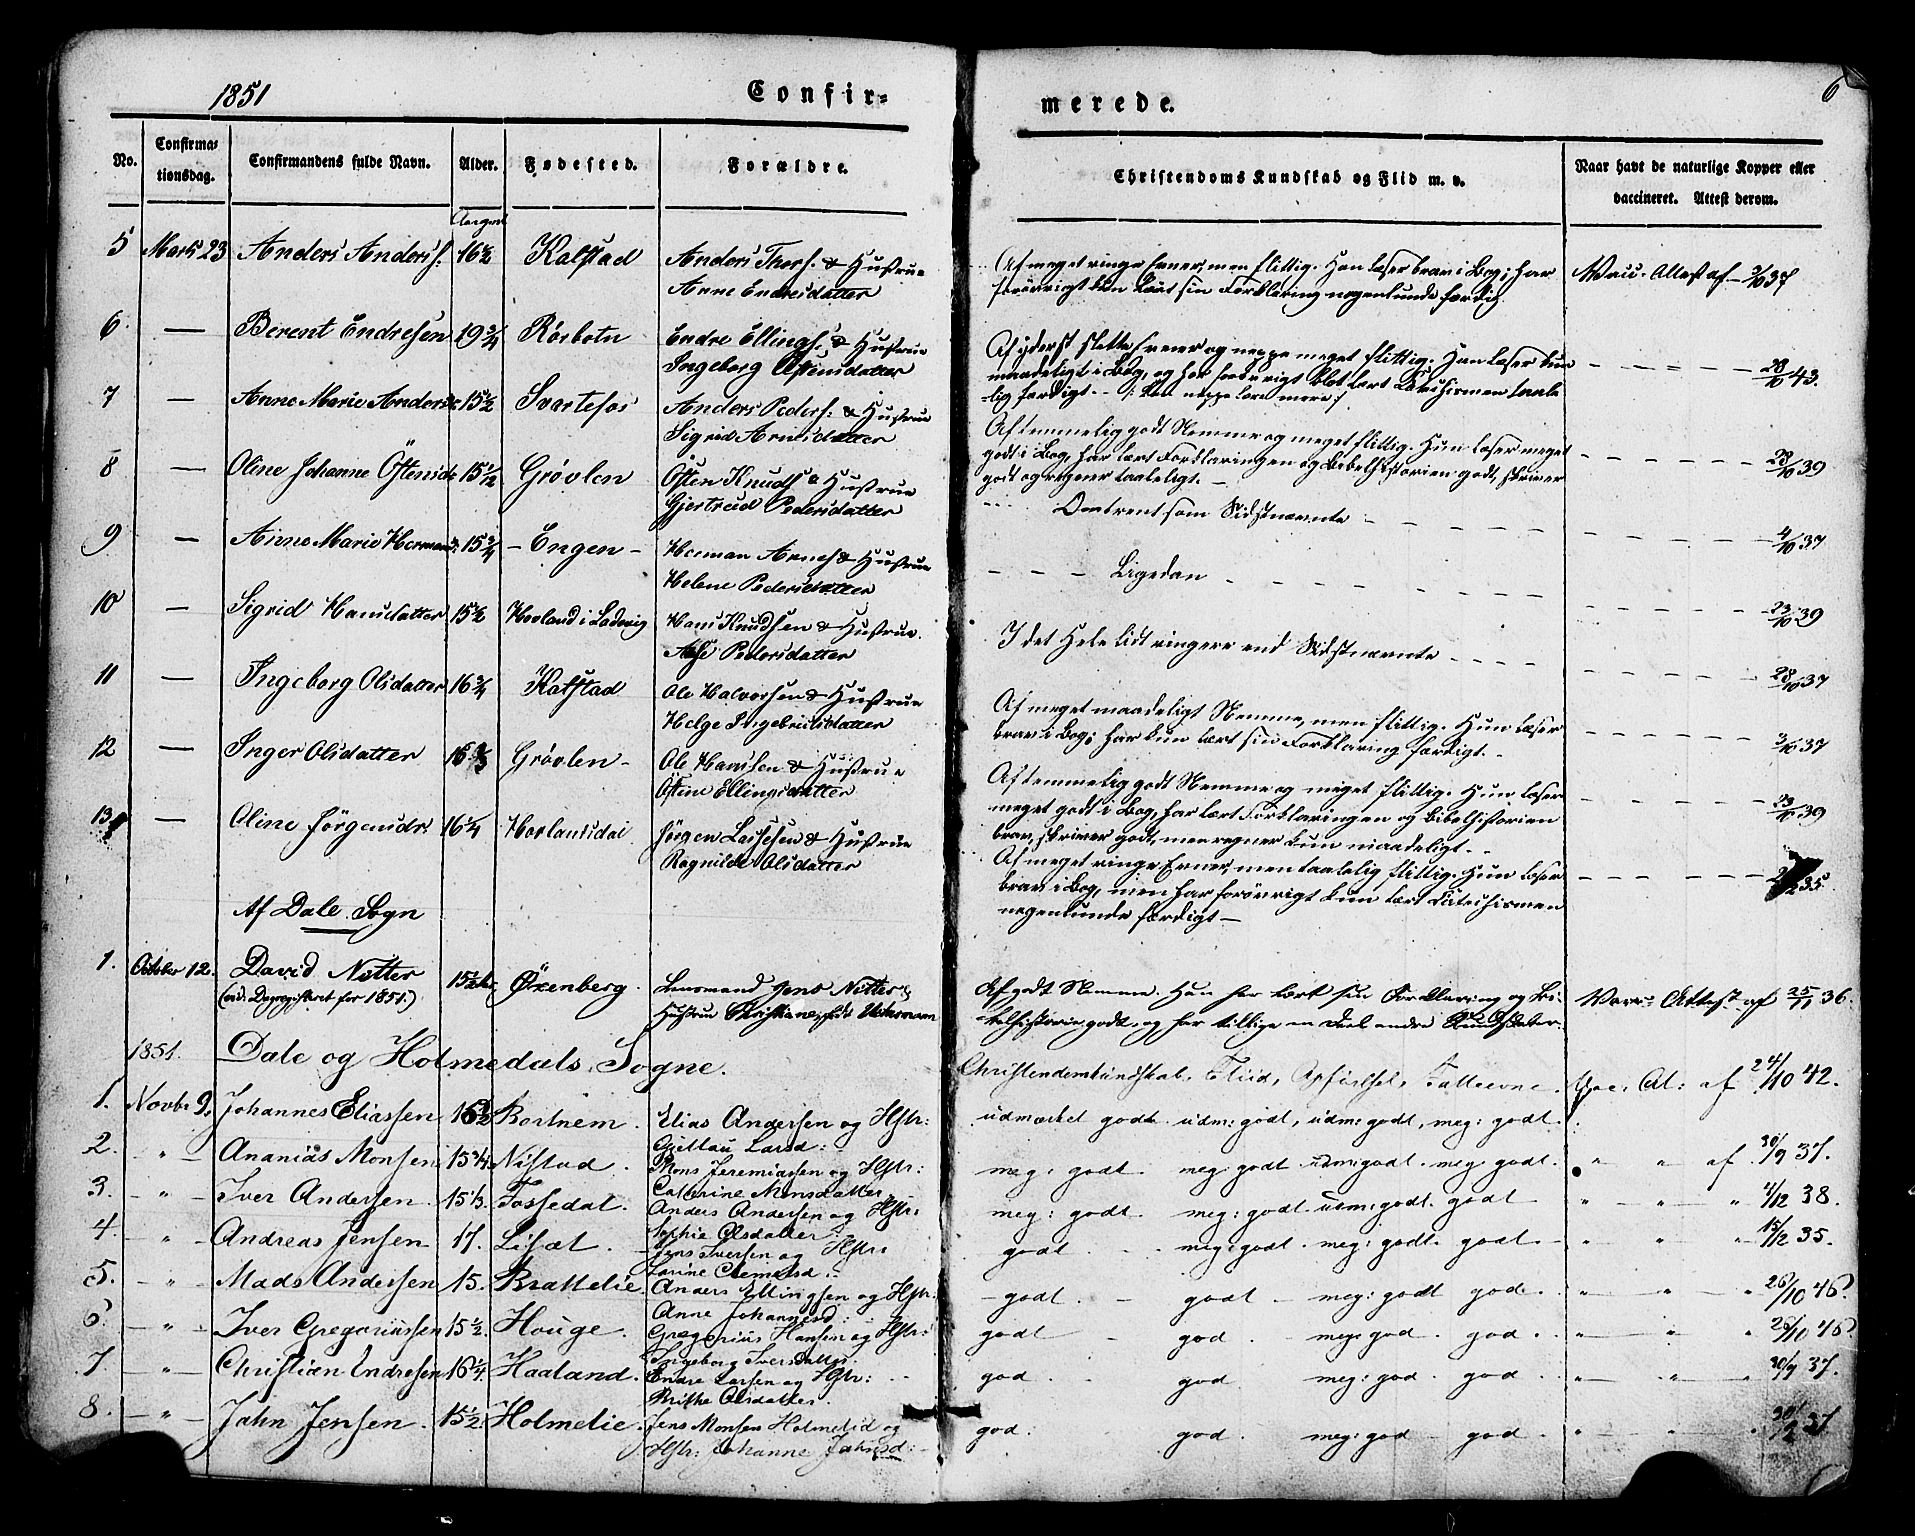 1851 Confir- merede. 6
No. Confirmationsdag. Confirmandens fulde Navn. Alder. Fødested. Forældre. Christendoms Kundskab og Flid m. v. Naar havt de naturlige Kopper eller vaccineret. Attest derom.
5 Marts 23 Anders Anders: 16½ Kalstad Anders Thors: & Hustrue
Anne Endresdatter
Af meget ringe Evner, men flittig. Han læser brav i Bog; har
forövrigt kun lært sin Forklaring nogenlunde færdig.
Vacc. Attest af 3/10 37
6. — Berent Endresen 19¾ Rörbotn Endre Ellings: & Hustrue
Ingeborg Östensdatter
Af yderst slette Evner og neppe meget flittig. Han læser kun
maadeligt i Bog, og har forövrigt blot lært Catechismen taale
-lig færdigt.
28/10 43.
7 — Anne Marie Andersd: 15½ Svartefos Anders Peders: & Hustrue
Sigrid Arnesdatter
Af temmelig godt Nemme og meget flittig. Hun læser meget
godt i Bog, har lært Forklaringen og Bibelhistorien godt, skriver
godt og regner taaleligt. —
28/10 39
8 — Oline Johanne Östensd: 15½ Grövlen Östen Knuds: & Hustrue
Gjertrud Pedersdatter
Omtrent som Sidstnævnte
4/10 37
9 — Anne Marie Hermansd: 15¾ - Engen - Herman Arnes: & Hustrue
Helene Pedersdatter
Ligedan
23/10 39
10 — Sigrid Hansdatter 15½ Hovland i Ladvig Hans Knudsen & Hustrue.
Pedersdatter
I det Hele lidt ringere end Sidstnævnte
28/10 37
11 — Ingeborg Olsdatter 16¾ Kalstad Ole Halvorsen & Hustrue
Helge Ingebritsdatter
Af meget maadeligt Nemme, men flittig. Hun læser
brav i Bog; har kun lært sin Forklaring færdigt. -
3/10 37
12 — Inger Olsdatter 16 Grövlen - Ole Hansen & Hustrue
Östine Ellingsdatter
Af temmelig godt Nemme og meget flittig. Hun læser
meget godt i Bog, har lært Forklaringen og Bibelhistorien
brav, skriver godt, men regner kun maadeligt. -
23/10 39
13 — Oline Jörgensdr: 16¼ Hovlandsdal Jörgen Lassesen & Hustrue
Ragnilde Olsdatter
Af meget ringe Evner, men taalelig flittig. Hun læser
brav i Bog, men har forövrigt kun lært Catechismen
nogenlunde færdigt —
35
Af Dale Sogn
1. October 12. David Nitter
(vid. Dagregisteret for 1851.) 15½ Öxenberg. Lensmand Jens Nitter &
Hustrue Christiane, född
Af godt Nemme. Han har lært sin Forklaring og Bi-
belhistorie godt, og har tillige en Deel andre Kundskaber.
Vacc: Attest af 25/11 36.
1851. Dale og Holmedals Sogne. Christendomskundskab, Fliid, Opförelse, Fatteevne.
1. Novbr 9. Johannes Eliassen 15½ Bortnem. Elias Andersen og Hstr:
Gjellau Larsd:
udmærket godt udm: godt, udm: godt, meg: godt. Vac: At: af 24/10 42.
2. - " - Ananias Monsen 15¾ Nistad. Mons Jeremiassen og Hstr:
Catherine Monsdatter
meg: godt meg: godt udm: godt. meg: godt. " " af 30/9 37.
3. - " - Iver Andersen 15⅓ Fossedal. Anders Andersen og Hstr:
Sophie Olsdatter:
meg: godt. meg: godt udm: godt. godt " " " 4/12 38.
4. - " - Andreas Jensen 17. Lisæt. Jens Iversen og Hstr:
Larine Clemetsd:
godt meg: godt meg: godt. godt. " " " 15/2 35.
5. - " - Mads Andersen 15. Brattelie. Anders Ellingsen og Hstr:
Anne Johannesd:
godt. godt meg: godt god. " " " 26/10 46?
6. - " - Iver Gregoriussen 15½. Houge. Gregorius Hansen og Hstr:
Ingeborg Iversdatter.
godt god. meg: god. god. " " " 26/10 46?
7. - " - Christian Endresen 16¼. Haaland. Endre Larsen og Hstr:
Brithe Olsdatter.
god god. meg: god. god " " " 30/9 37.
8. - " - John Jensen. 15½. Holmelie. Jens Monsen Holmelid og
Hstr: Johanne Johnsd:
god: god. meg: god god. " " " 37.